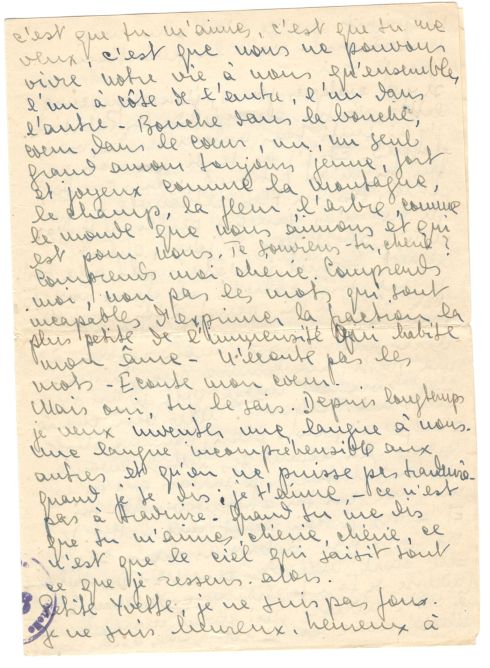 c'est que tu m'aimes, c'est que tu me
veux, c'est que nous ne pouvons
vivre notre vie à nous qu'ensembles
l'un à côté de l'autre, l'un dans
l'autre - Bouche dans la bouche,
coeur dans le coeur, un, un seul
grand amour toujours jeune, fort
et joyeux comme la montagne,
le champ, la fleur l'arbre, comme
le monde que nous aimons et qui
est pour nous. Te souviens-tu, chérie?
Comprends moi chérie. Comprends
moi, non pas les mots qui sont
incapables d'exprimer la fraction la
plus petite de l'immensité qui habite
mon âme - N'écoute pas les
mots - Ecoute mon coeur.
Mais oui, tu le sais. Depuis longtemps
je veux inventer une langue à nous.
Une langue incompréhensible aux
autres et qu'on ne puisse pas traduire.
quand je te dis, je t'aime, - ce n'est
pas à traduire. Quand tu me dis
que tu m'aimes chérie, chérie, ce
n'est que le ciel qui saisit tout
ce que je ressens alors.
Petite Yvette, je ne suis pas fou.
Je ne suis heureux. heureux à